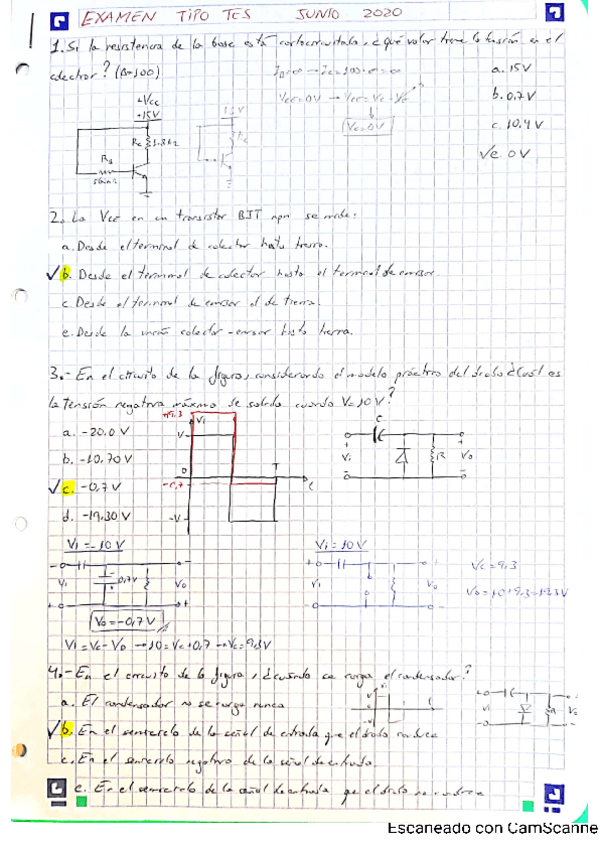 EXAMEN TIPO TES JUNIO 2020
1. Si la resistencia de la base está cortocircuitada, ¿qué valor tiene la tensión en el
colector? (B=100)
a. 15V
b. 0.7V
c. 10.4V
√e. 0V
+Vcc
+15V
Rc 1.8kΩ
RB
560kΩ
15V
Rc
Vce=0V
Vc=0V
2. La Vce en un transistor BJT npn se mide:
a. Desde el terminal de colector hasta tierra.
√b. Desde el terminal de colector hasta el terminal de emisor.
c. Desde el terminal de emisor al de tierra.
e. Desde la unión colector-emisor hasta tierra.
3.- En el circuito de la figura, considerando el modelo práctico del diodo ¿Cuál es
la tensión negativa máxima de salida cuando V=10V?
a. -20.0 V
b. -10.70 V
√c. -0,7 V
d. -19.30 V
+19,3
Vi
V
0
T
t
-0,7
-V
C
Vi
R
Vo
Vi=-10V
Vi
0,7V
Vo
Vo=-0,7V
Vi=Vc-Vo → 10=Vc+0,7 → Vc=9,3V
Vi=10V
Vi
Vo
Vc=9,3
Vo=10+9,3=19.3V
4.- En el circuito de la figura, ¿cuándo se carga el condensador?
a. El condensador no se carga nunca
√b. En el semiciclo de la señal de entrada que el diodo conduce
c. En el semiciclo negativo de la señal de entrada.
e. En el semiciclo de la señal de entrada que el diodo no conduce
Vi
R
Vo
Escaneado con CamScanne